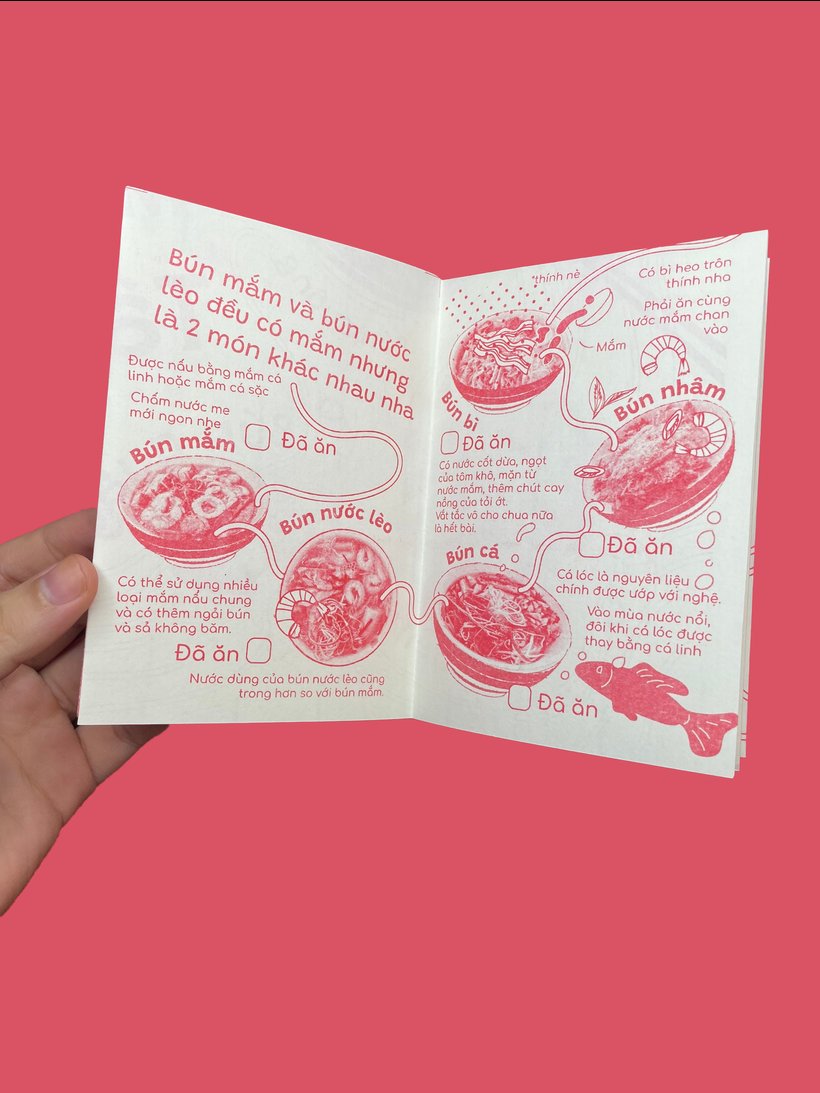 Bún mắm và bún nước
lèo đều có mắm nhưng
là 2 món khác nhau nha
Được nấu bằng mắm cá
linh hoặc mắm cá sặc
Chấm nước me
mới ngon nhe
Đã ăn
Bún mắm
Bún nước lèo
Có thể sử dụng nhiều
loại mắm nấu chung
và có thêm ngải bún
và sả không băm.
Đã ăn
Nước dùng của bún nước lèo cũng
trong hơn so với bún mắm.
*thính nè
Có bì heo trộn
thính nha
Phải ăn cùng
nước mắm chan
vào
Mắm
Bún bì
Đã ăn
Bún nhâm
Có nước cốt dừa, ngọt
của tôm khô, mặn từ
nước mắm, thêm chút cay
nồng của tỏi ớt.
Vắt tắc vô cho chua nữa
là hết bài.
Đã ăn
Bún cá
Cá lóc là nguyên liệu
chính được ướp với nghệ.
Vào mùa nước nổi,
đôi khi cá lóc được
thay bằng cá linh
Đã ăn